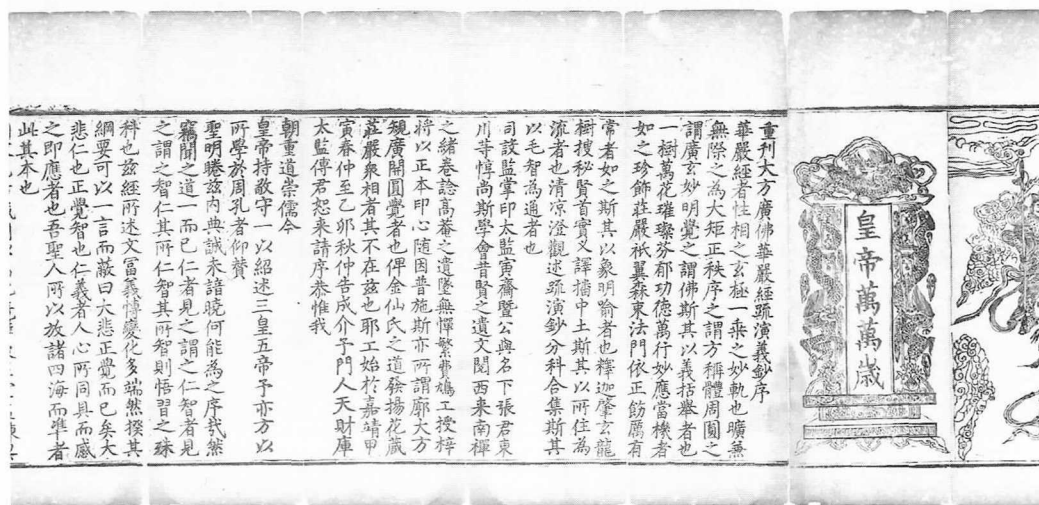 皇帝萬萬歲
重刊大方廣佛華嚴經疏演義鈔序
華嚴經者性相之玄極一乗之妙軌也曠兼
無際之為大矩正秩序之謂方稱體周圓之
謂廣玄妙明覺之謂佛斯其以義括舉者也
一樹萬花璀璨芬郁功德萬行妙應當機者
如之珍飾莊嚴祇翼森束法門依正飭厲有
常者如之斯其以象明喻者也釋迦肇玄龍
樹搜秘賢首實义譯播中土斯其以所住為
流者也清凉澄觀述疏演鈔分科合集斯其
以毛智為通者也
司設監掌印太監寅齋暨公與名下張君東
川等惇尚斯學會昔賢之遺文閱西来南禪
之緒卷諗高菴之遺墜無憚繁費鳩工授梓
將以正本印心随因普施斯亦所謂廓大方
䂓廣開圓覺者也俾金仙氏之道發揚花蔵
莊嚴衆相者其不在兹也耶工始於嘉靖甲
寅春仲至乙卯秋仲告成介予門人天財庫
太監傳君恕来請序恭惟我
朝重道崇儒今
皇帝持敬守一以紹述三皇五帝予亦方以
所學於周孔者仰賛
聖明睠兹内典誠未諳曉何能為之序㢤然
竊聞之道一而已仁者見之謂之仁智者見
之謂之智仁其所仁智其所智則悟習之殊
科也兹經所述文富義博變化多端然揆其
綱要可以一言而蔽曰大悲正覺而已矣大
悲仁也正覺智也仁義者人心所同具而感
之即應者也吾聖人所以放諸四海而凖者
此其本也